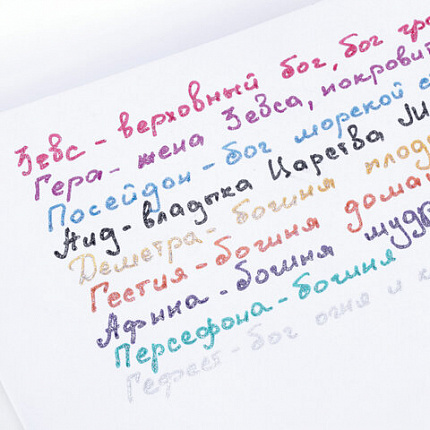 Зевс - верховный бог, бог гро
Гера - жена Зевса, покрови
Посейдон - бог морской с
Аид - владыка Царства
Деметра - богиня плод
Гестия - богиня дома
Афина - богиня мудр
Персефона - богиня
Гефест - бог огня и к